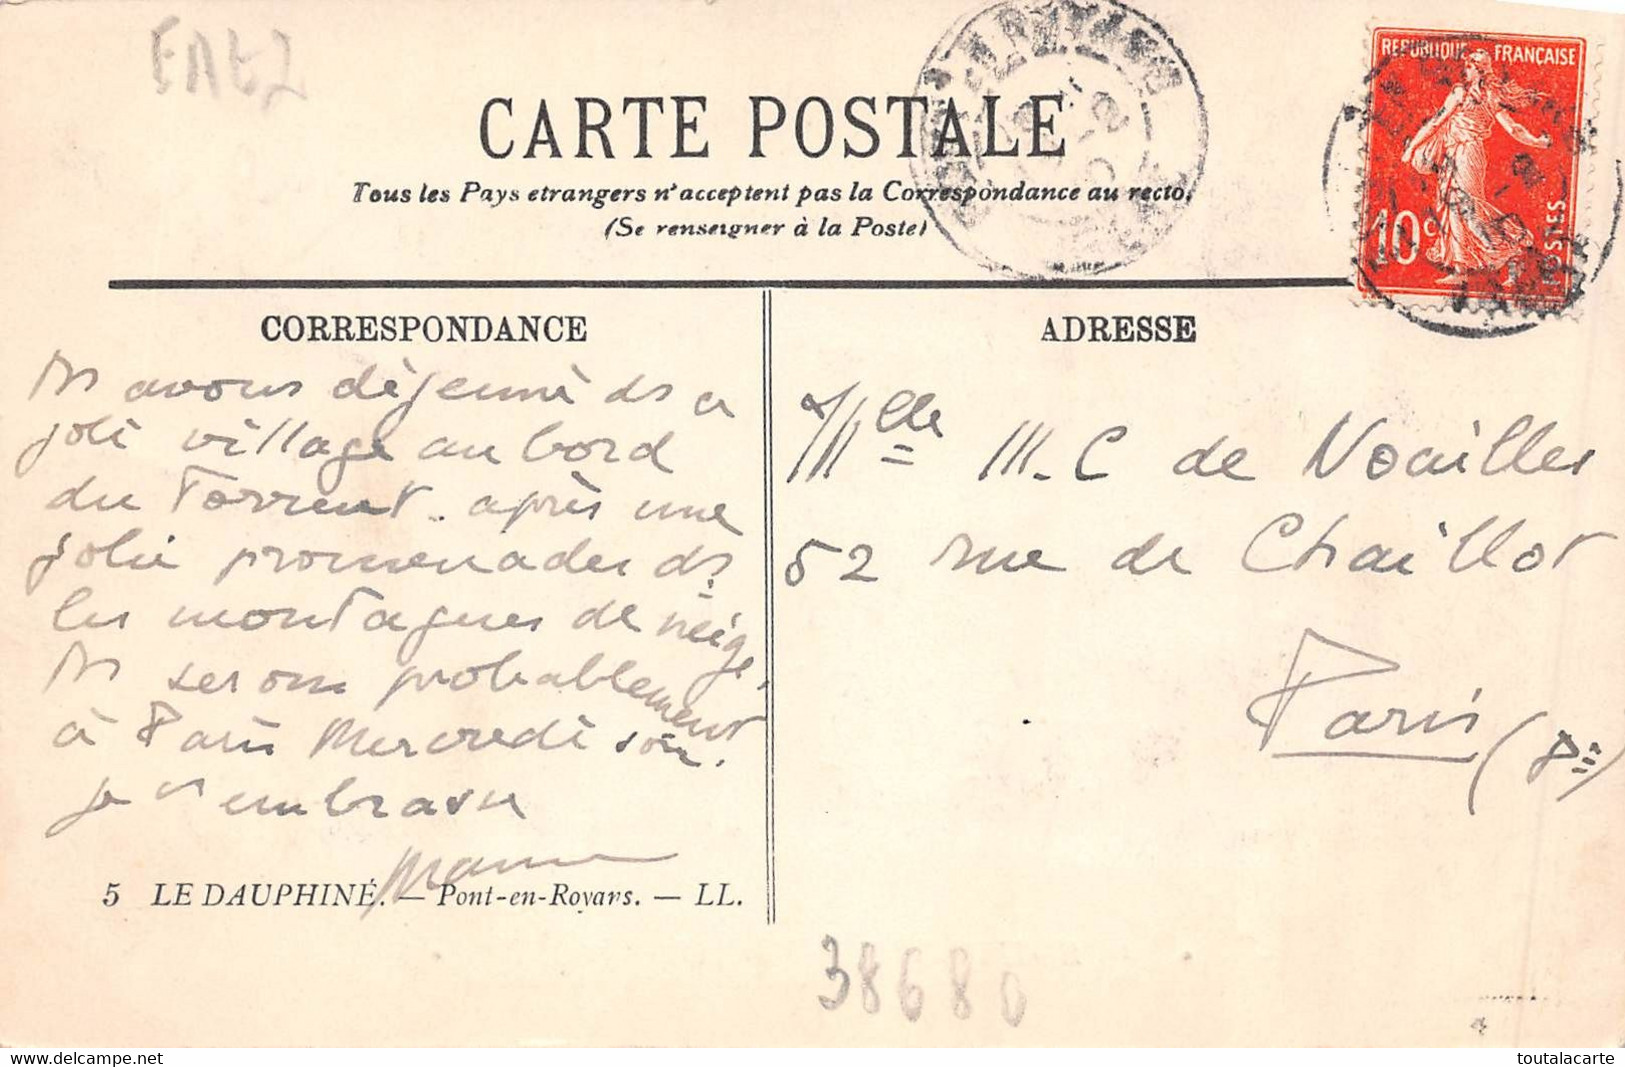 RÉPUBLIQUE FRANÇAISE
10c
POSTES
CARTE POSTALE
Tous les Pays etrangers n'acceptent pas la Correspondance au recto.
(Se renseigner à la Poste)
CORRESPONDANCE
ns avons déjeuné ds ce
joli village au bord
du Torrent. après une
jolie promenades ds
les montagnes de neige.
ns serons probablement
à Paris Mercredi soir.
je vs embrasse
Maman
5 LE DAUPHINÉ. — Pont-en-Royans. — LL.
ADRESSE
Mlle M. C de Noailles
52 rue de Chaillot
Paris
38680
toutalacarte